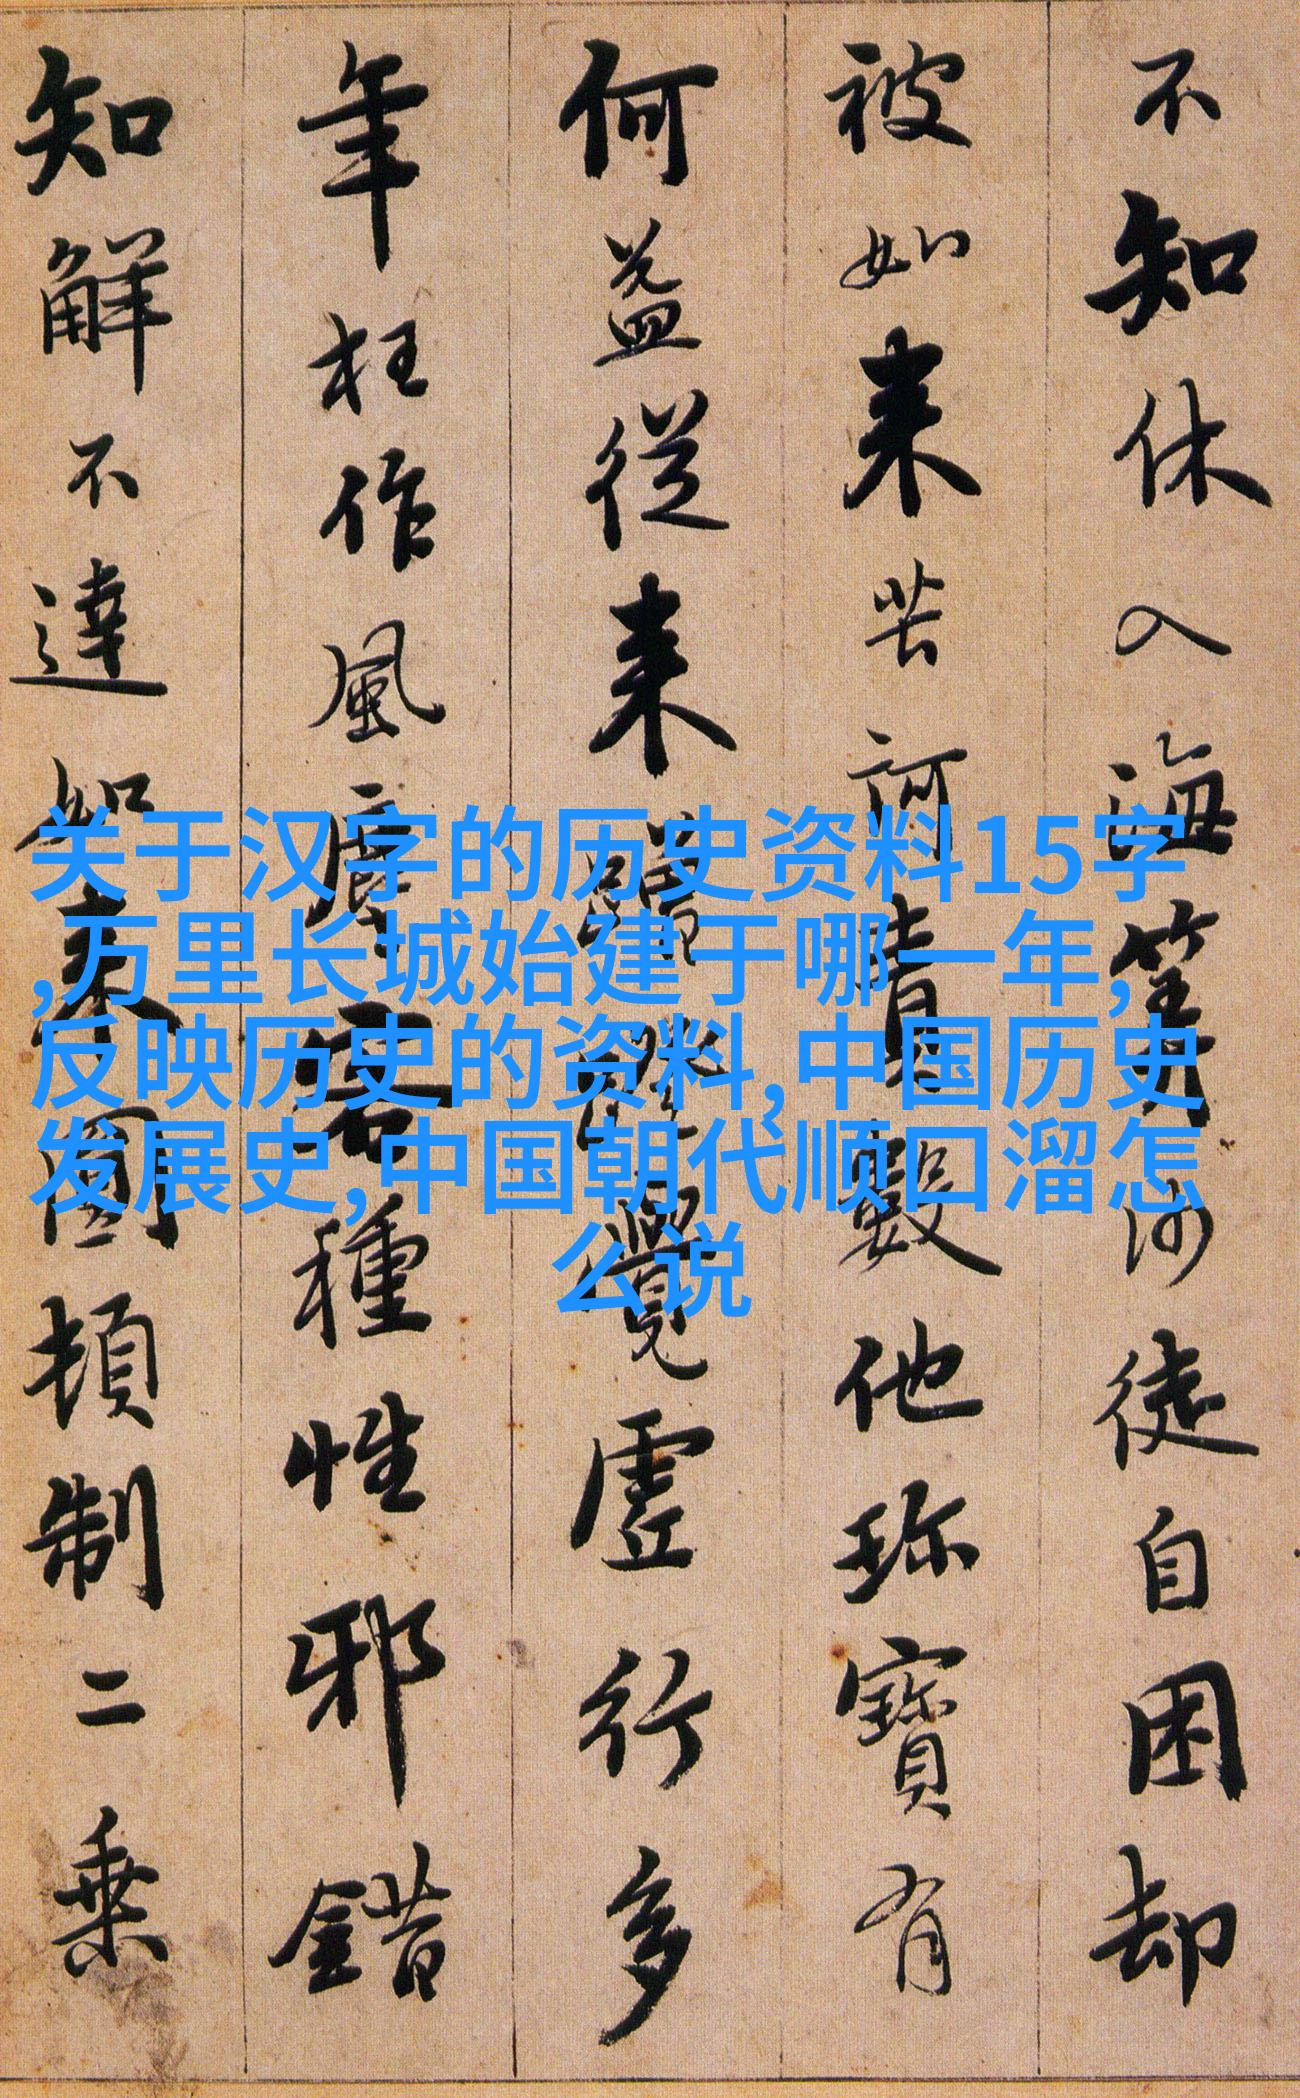 不知休入海筭沙徒自困却
被如来苦訶責數他珎寶有
何益從来蹭蹬覺虛行多
年枉作風塵客種性邪錯
知解不達如来圓頓制二乗
关于汉字的历史资料15字
,万里长城始建于哪一年,
反映历史的资料,中国历史
发展史,中国朝代顺口溜怎
么说